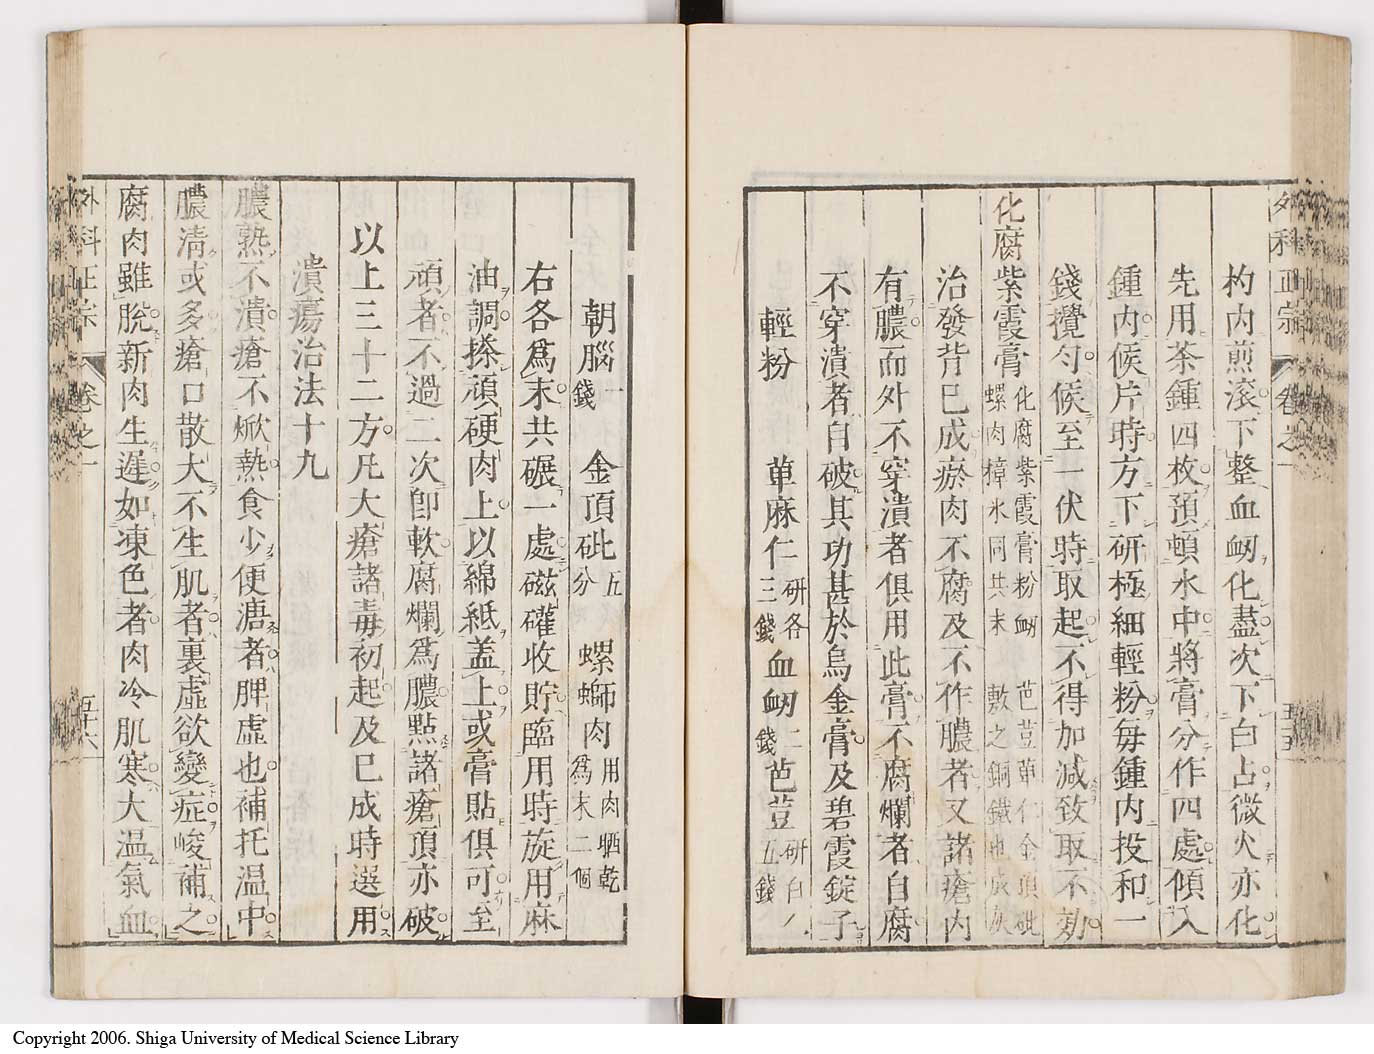 外科正宗 卷之一
杓内煎滚下整血衂化盡次下白占微火亦化
先用茶鍾四枚預頓水中將膏分作四處傾入
鍾内候片時方下研極細輕粉每鍾内投和一
錢攪勻候至一伏時取起不得加減致取不効
化腐紫霞膏 化腐紫霞膏粉衂 芭荳萆仁金頂砒
螺肉樟氷同共末 敷之銅鐵也成灰
治發背已成瘀肉不腐及不作膿者又諸瘡内
有膿而外不穿潰者俱用此膏不腐爛者自腐
不穿潰者自破其功甚於烏金膏及碧霞錠子
輕粉 萆麻仁 研各三錢 血衂 二錢 芭荳 研白五錢
朝腦 一錢 金頂砒 五分 螺螄肉 用肉晒乾爲末二個
右各爲末共碾一處磁礶收貯臨用時旋用麻
油調搽頑硬肉上以綿紙盖上或膏貼俱可至
頑者不過二次卽軟腐爛爲膿點諸瘡頂亦破
以上三十二方凡大瘡諸毒初起及已成時選用
潰瘍治法十九
膿熟不潰瘡不焮熱食少便溏者脾虛也補托温中
膿淸或多瘡口散大不生肌者裏虛欲變症峻補之
腐肉雖脫新肉生遲如凍色者肉冷肌寒大温氣血
外科正宗 卷之一 五十六
Copyright 2006. Shiga University of Medical Science Library